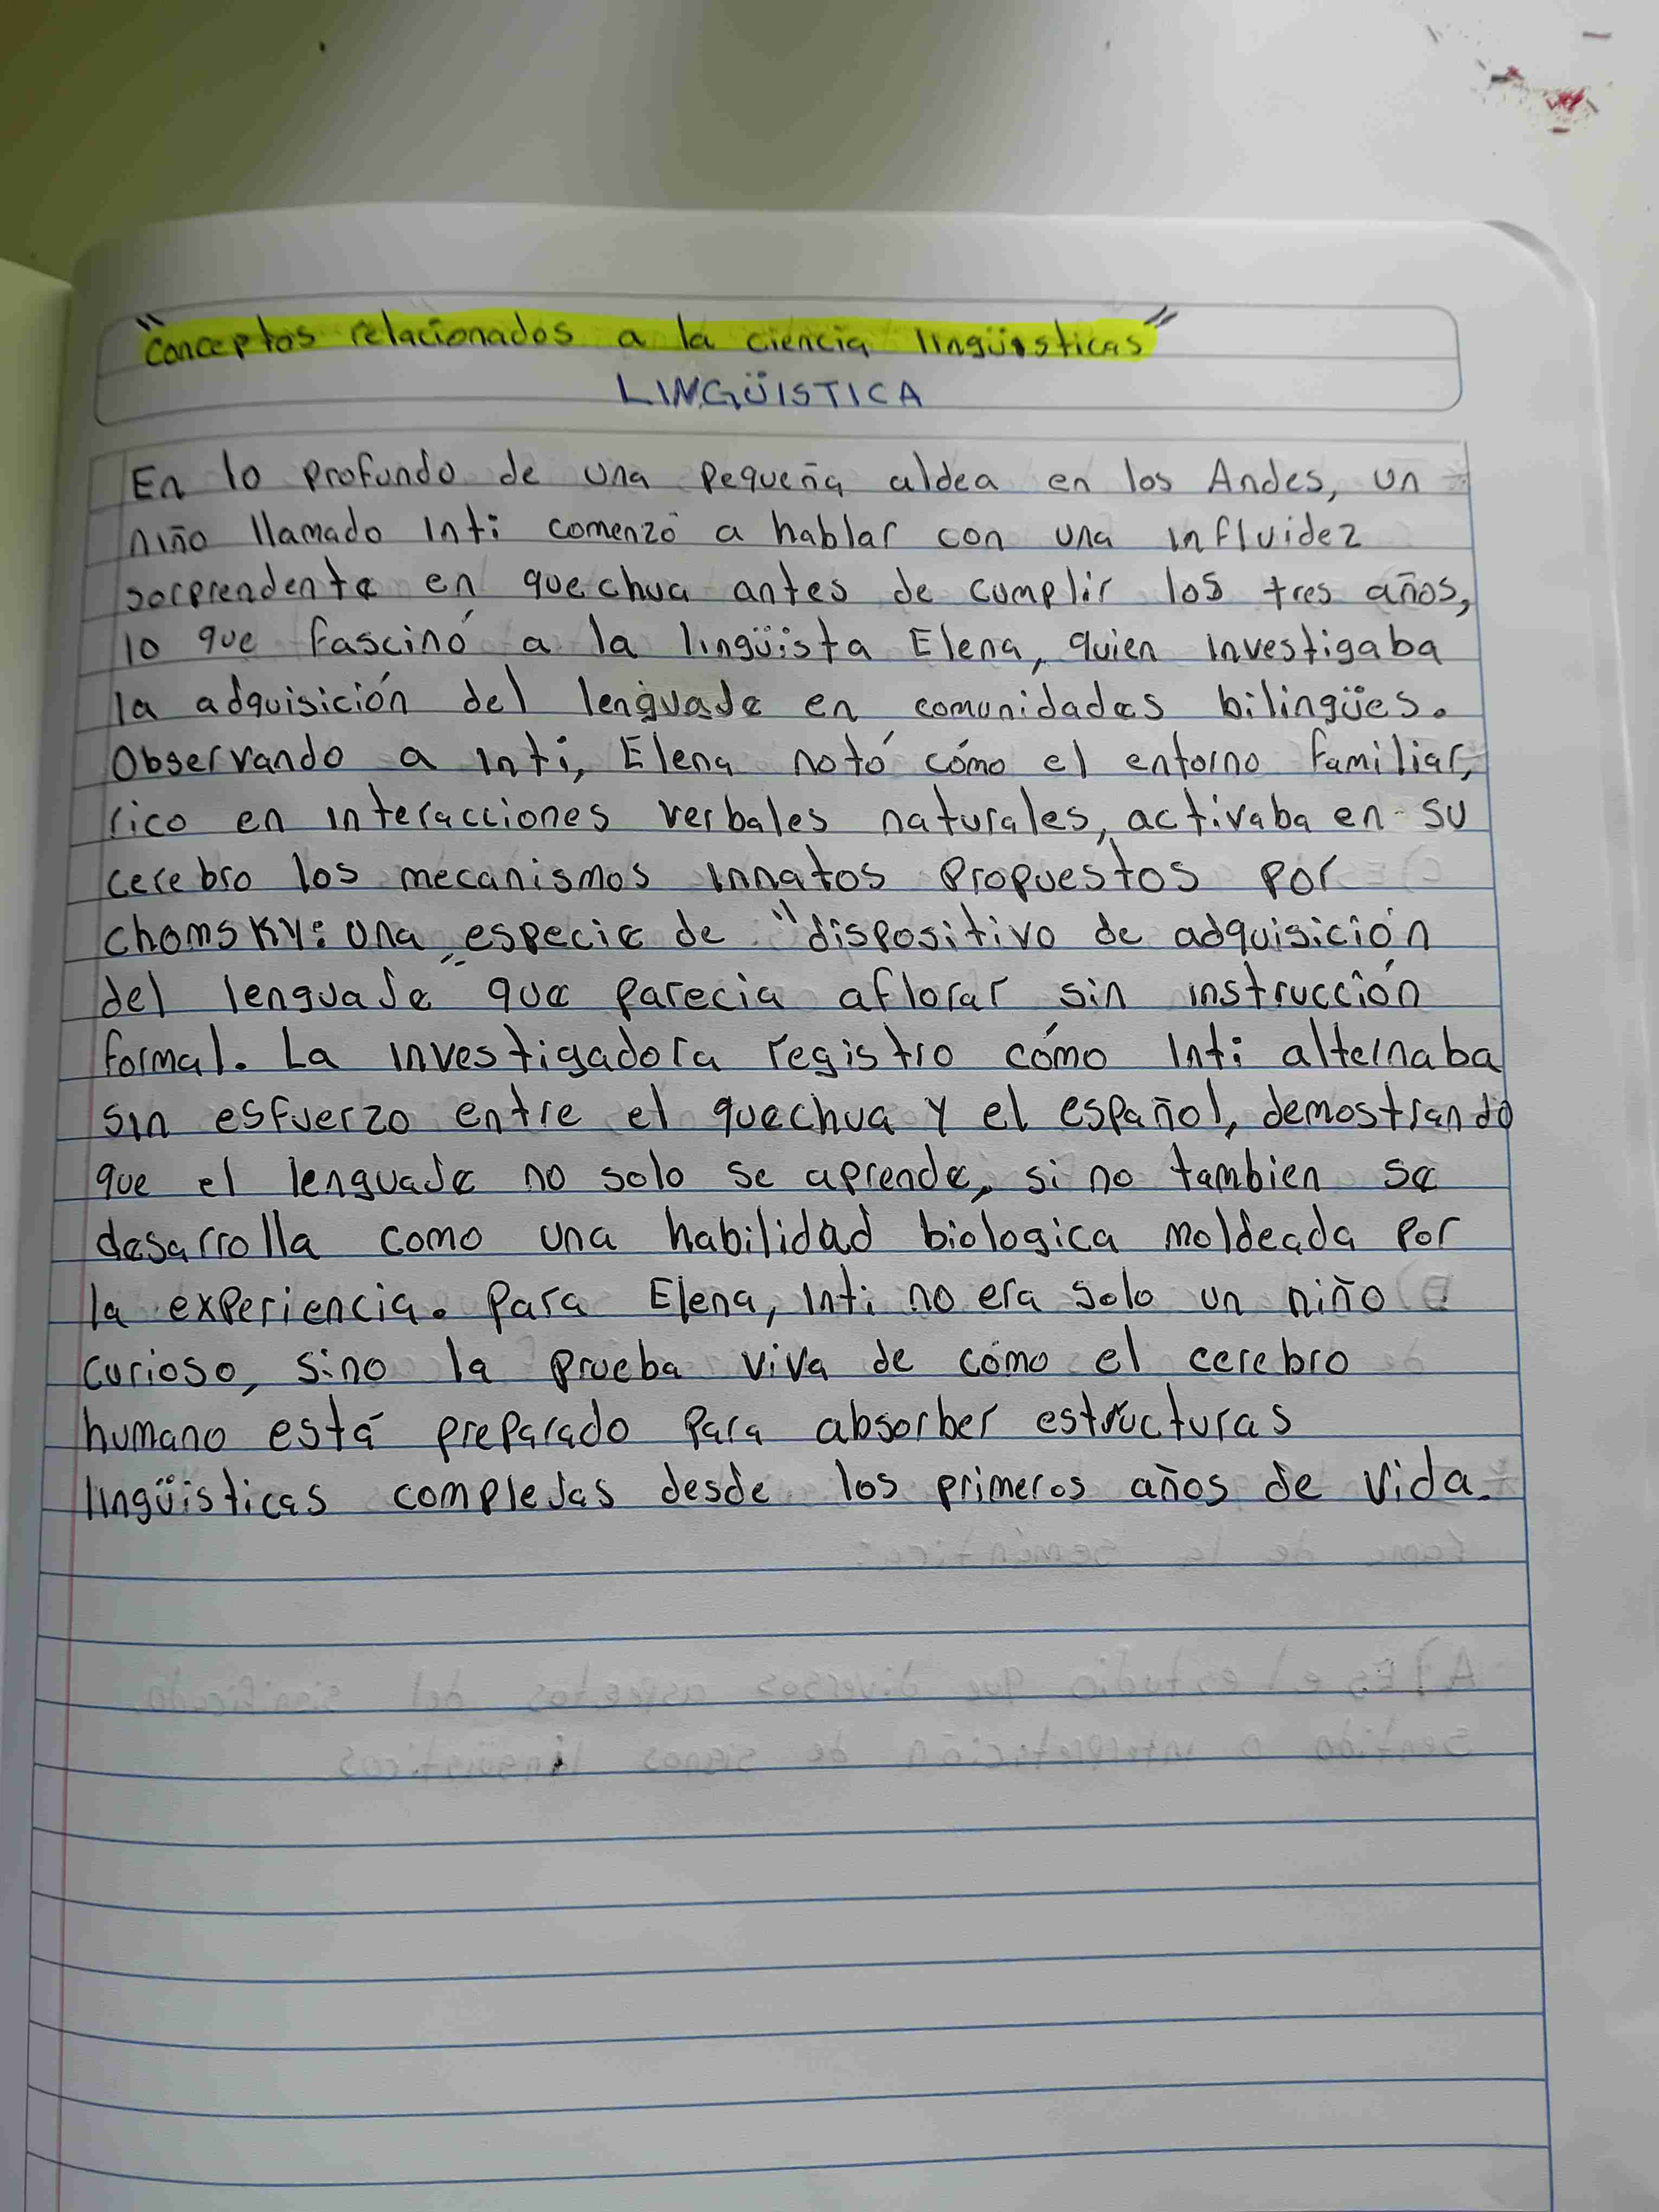 "Conceptos relacionados a la ciencia lingüisticas"
LINGÜISTICA
En lo profundo de una pequeña aldea en los Andes, un
niño llamado Inti comenzó a hablar con una influidez
sorprendente en quechua antes de cumplir los tres años,
lo que fascinó a la lingüista Elena, quien investigaba
la adquisición del lenguaje en comunidades bilingües.
Observando a Inti, Elena notó cómo el entorno familiar,
rico en interacciones verbales naturales, activaba en su
cerebro los mecanismos innatos propuestos por
Chomsky: una especie de "dispositivo de adquisición
del lenguaje" que parecia aflorar sin instrucción
formal. La investigadora registro cómo Inti alternaba
sin esfuerzo entre el quechua y el español, demostrando
que el lenguaje no solo se aprende, si no tambien se
desarrolla como una habilidad biologica moldeada por
la experiencia. Para Elena, Inti no era solo un niño
curioso, sino la prueba viva de cómo el cerebro
humano está preparado para absorber estructuras
lingüisticas complejas desde los primeros años de vida.